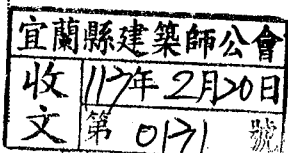 宜蘭縣建築師公會
收文
117年2月20日
第0171號